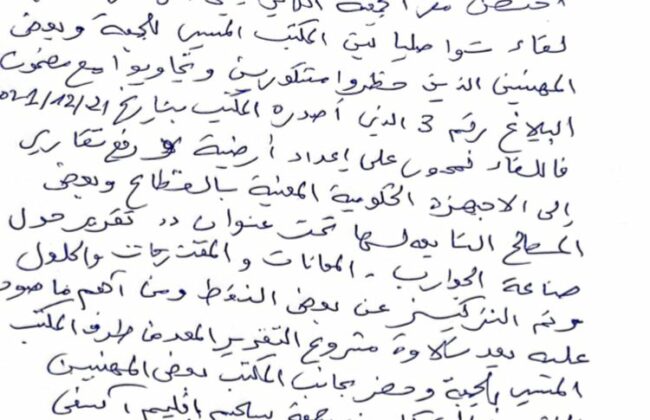 احتضن مقر الجمعية
لقاء تواصليا بين المكتب المسير للجمعية وبعض
المهنيين الذين حظروا مشكورين وتجاوبوا مع مضمون
البلاغ رقم 3 الذي أصدره المكتب بتاريخ 2021/12/21
فاللقاء تمحور على إعداد أرضية و رفع تقارير
إلى الاجهزة الحكومية المعنية بالقطاع وبعض
المصالح التابعة لها تحت عنوان ,, تقرير حول
صناعة الجوارب - المعانات و المقترحات والحلول
وتم التركيز عن بعض النقط ومن أهم ما
عليه بعد تلاوة مشروع التقرير المعد من طرف المكتب
المسير للجمعية وحضر بجانب المكتب بعض المهنيين
اقليم آسفي